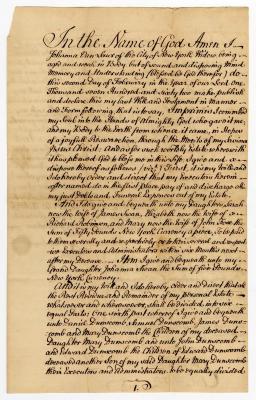 In the Name of God Amen I
Johanna Van of the City of New York Widow being
aged and weak in Body but of sound and disposing Mind
Memory and Understanding blessed be God therefor I do
this second Day of February in the Year of our Lord One
Thousand seven Hundred and Sixty two make publish
and declare this my last Will and Testament in manner
and Form following that is to say, Imprimis I commit
my Soul into the Hands of Almighty God who gave it me
and my Body to the Earth from whence it came, in Hopes
of a joyfull Resurrection, through the Merits of my Saviour
Jesus Christ and as for such worldly Estate wherewith
it has pleased God to bless me in this life I give and
dispose thereof as follows (viz) First, it is my Will and
I do hereby order and direct that my Executors herein
after named do in the first place pay of and discharge all
my just Debts and Funeral Expences out of my Estate
And I do give and bequeath unto my Daughters Sarah
now the Wife of James Swan, Elizabeth now the Wife of
Richard Robinson, and Mary now the Wife of John the
Sum of fifty Pounds New York Currency a piece to be paid
to them severally and respectively or to their several and respec-
tive Executors and Administrators within six Months next
after my Decease. Item I give and bequeath unto my
Grand Daughter Johanna Swan the Sum of five Pounds
New York Currency
And it is my Will and I do hereby order and direct that all
the Rest Residue and Remainder of my personal Estate
whatsoever and wheresoever, shall be divided, in six
equal Parts One sixth part whereof I give and bequeath
unto Daniel Dunscomb Samuel Dunscomb, James Duns-
comb and Mary Dunscomb the Children of my deceased
Daughter Mary Dunscomb and unto John Dunscomb
and Edward Dunscomb the Children of Edward Dunscomb
deceased another Son of my said Daughter Mary Dunscomb
their Executors and Administrators to be equally divided